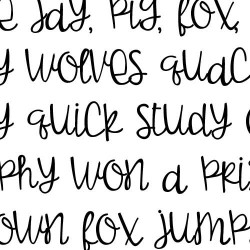 e jay, pig, fox,
y wolves quac
y quick study
phy won a pri
own fox jump